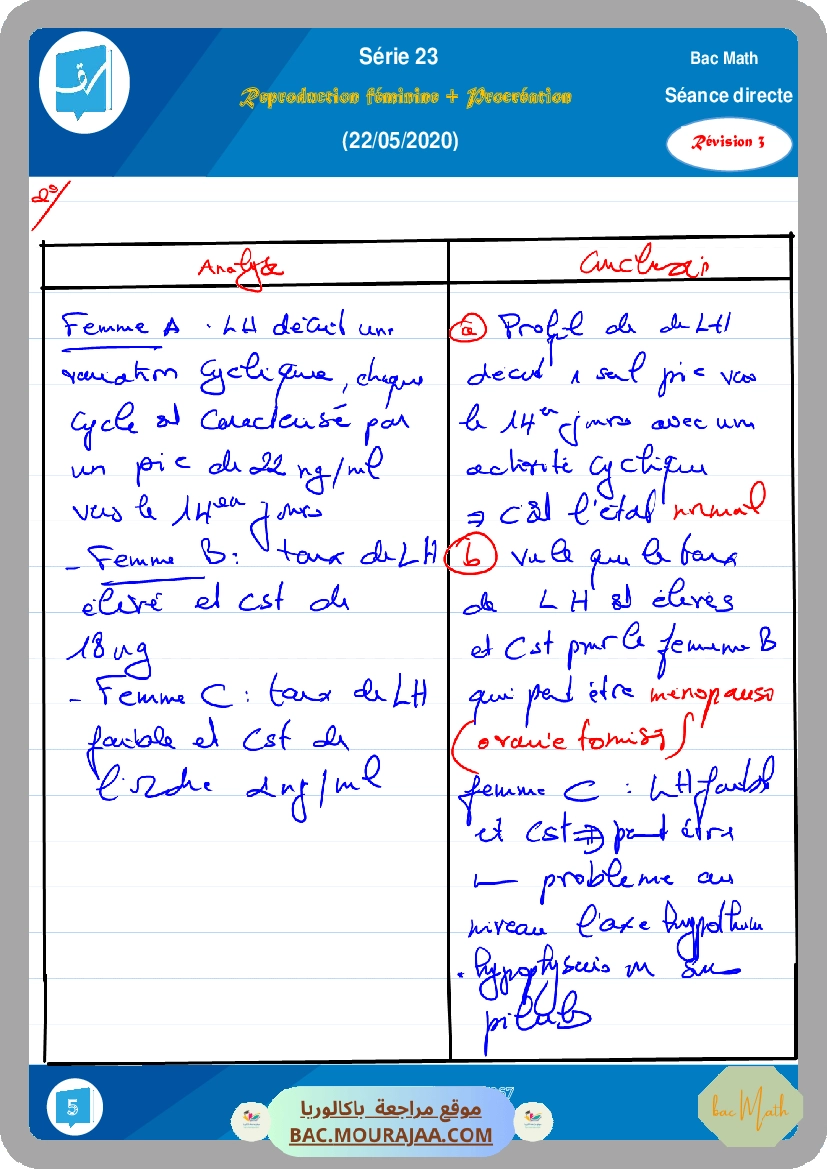 Série 23
Bac Math
Reproduction féminine + Procréation
Séance directe
(22/05/2020)
Révision 3
2°/
Analyse
Conclusion
Femme A . LH décrit une
variation cyclique, chaque
cycle est caractérisé par
un pic de 22 ng/ml
vers le 14em jours
- Femme B: taux de LH
élevé et cst de
18 ng
- Femme C : taux de LH
faible et cst de
l'ordre 2 ng/ml
a Profil de de LH
décrit 1 seul pic vers
le 14em jours avec une
activité cyclique
⇒ c'est l'état normal
b Vu le que le taux
de LH est élevés
et cst pour la femme B
qui peut être ménopause
(ovariectomisé)
femme C : LH faible
et cst ⇒ peut être
problème au
niveau l'axe
hypophysaire
5
موقع مراجعة باكالوريا
BAC.MOURAJAA.COM
bac Math